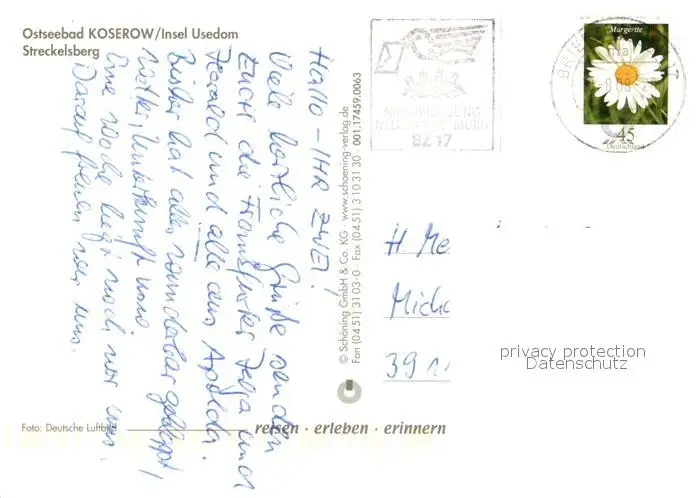 Ostseebad KOSEROW/Insel Usedom
Streckelsberg
Hallo - IHR ZWEI!
Viele herzliche Grüße senden
Euch die Transporter
Harald und alle aus Apolda.
Bisher hat alles wunderbar geklappt,
Wetter, Unterkunft usw.
Eine Woche liegt noch vor uns.
Darauf freuen wir uns.
© Schöning GmbH & Co. KG · www.schoening-verlag.de
Fon (04 51) 31 03-0 · Fax (04 51) 3 10 31 30 · 001.17459.0063
Foto: Deutsche Luftbild
reisen · erleben · erinnern
BZ 17
BRIEF
17
Margerite
45
Deutschland
H Me
Mich
39
privacy protection
Datenschutz